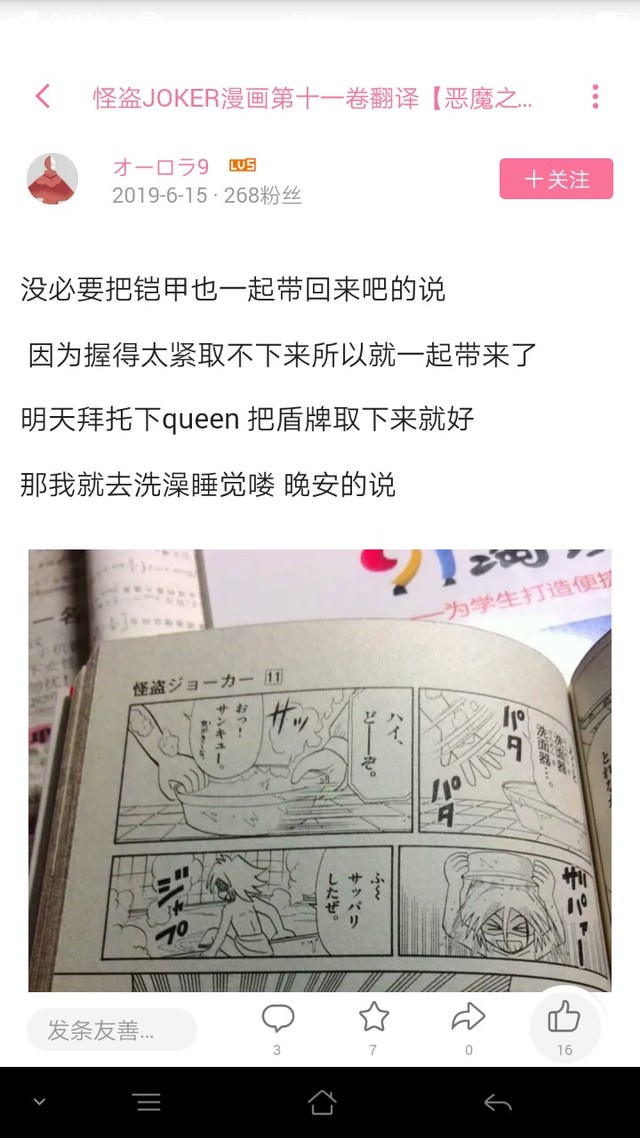 怪盗JOKER漫画第十一卷翻译【恶魔之...
オーロラ9 LV5
2019-6-15 · 268粉丝
十关注
没必要把铠甲也一起带回来吧的说
因为握得太紧取不下来所以就一起带来了
明天拜托下queen 把盾牌取下来就好
那我就去洗澡睡觉喽 晚安的说
一名
——为学生打造便捷
怪盗ジョーカー 11
洗面器
洗面器…。
パタ
パタ
ハイ、
どーーぞ。
サッ
おっ！
サンキュー。
ザパァー
ふ〜
サッパリ
したぜ。
ジャプ
发条友善...
3
7
0
16